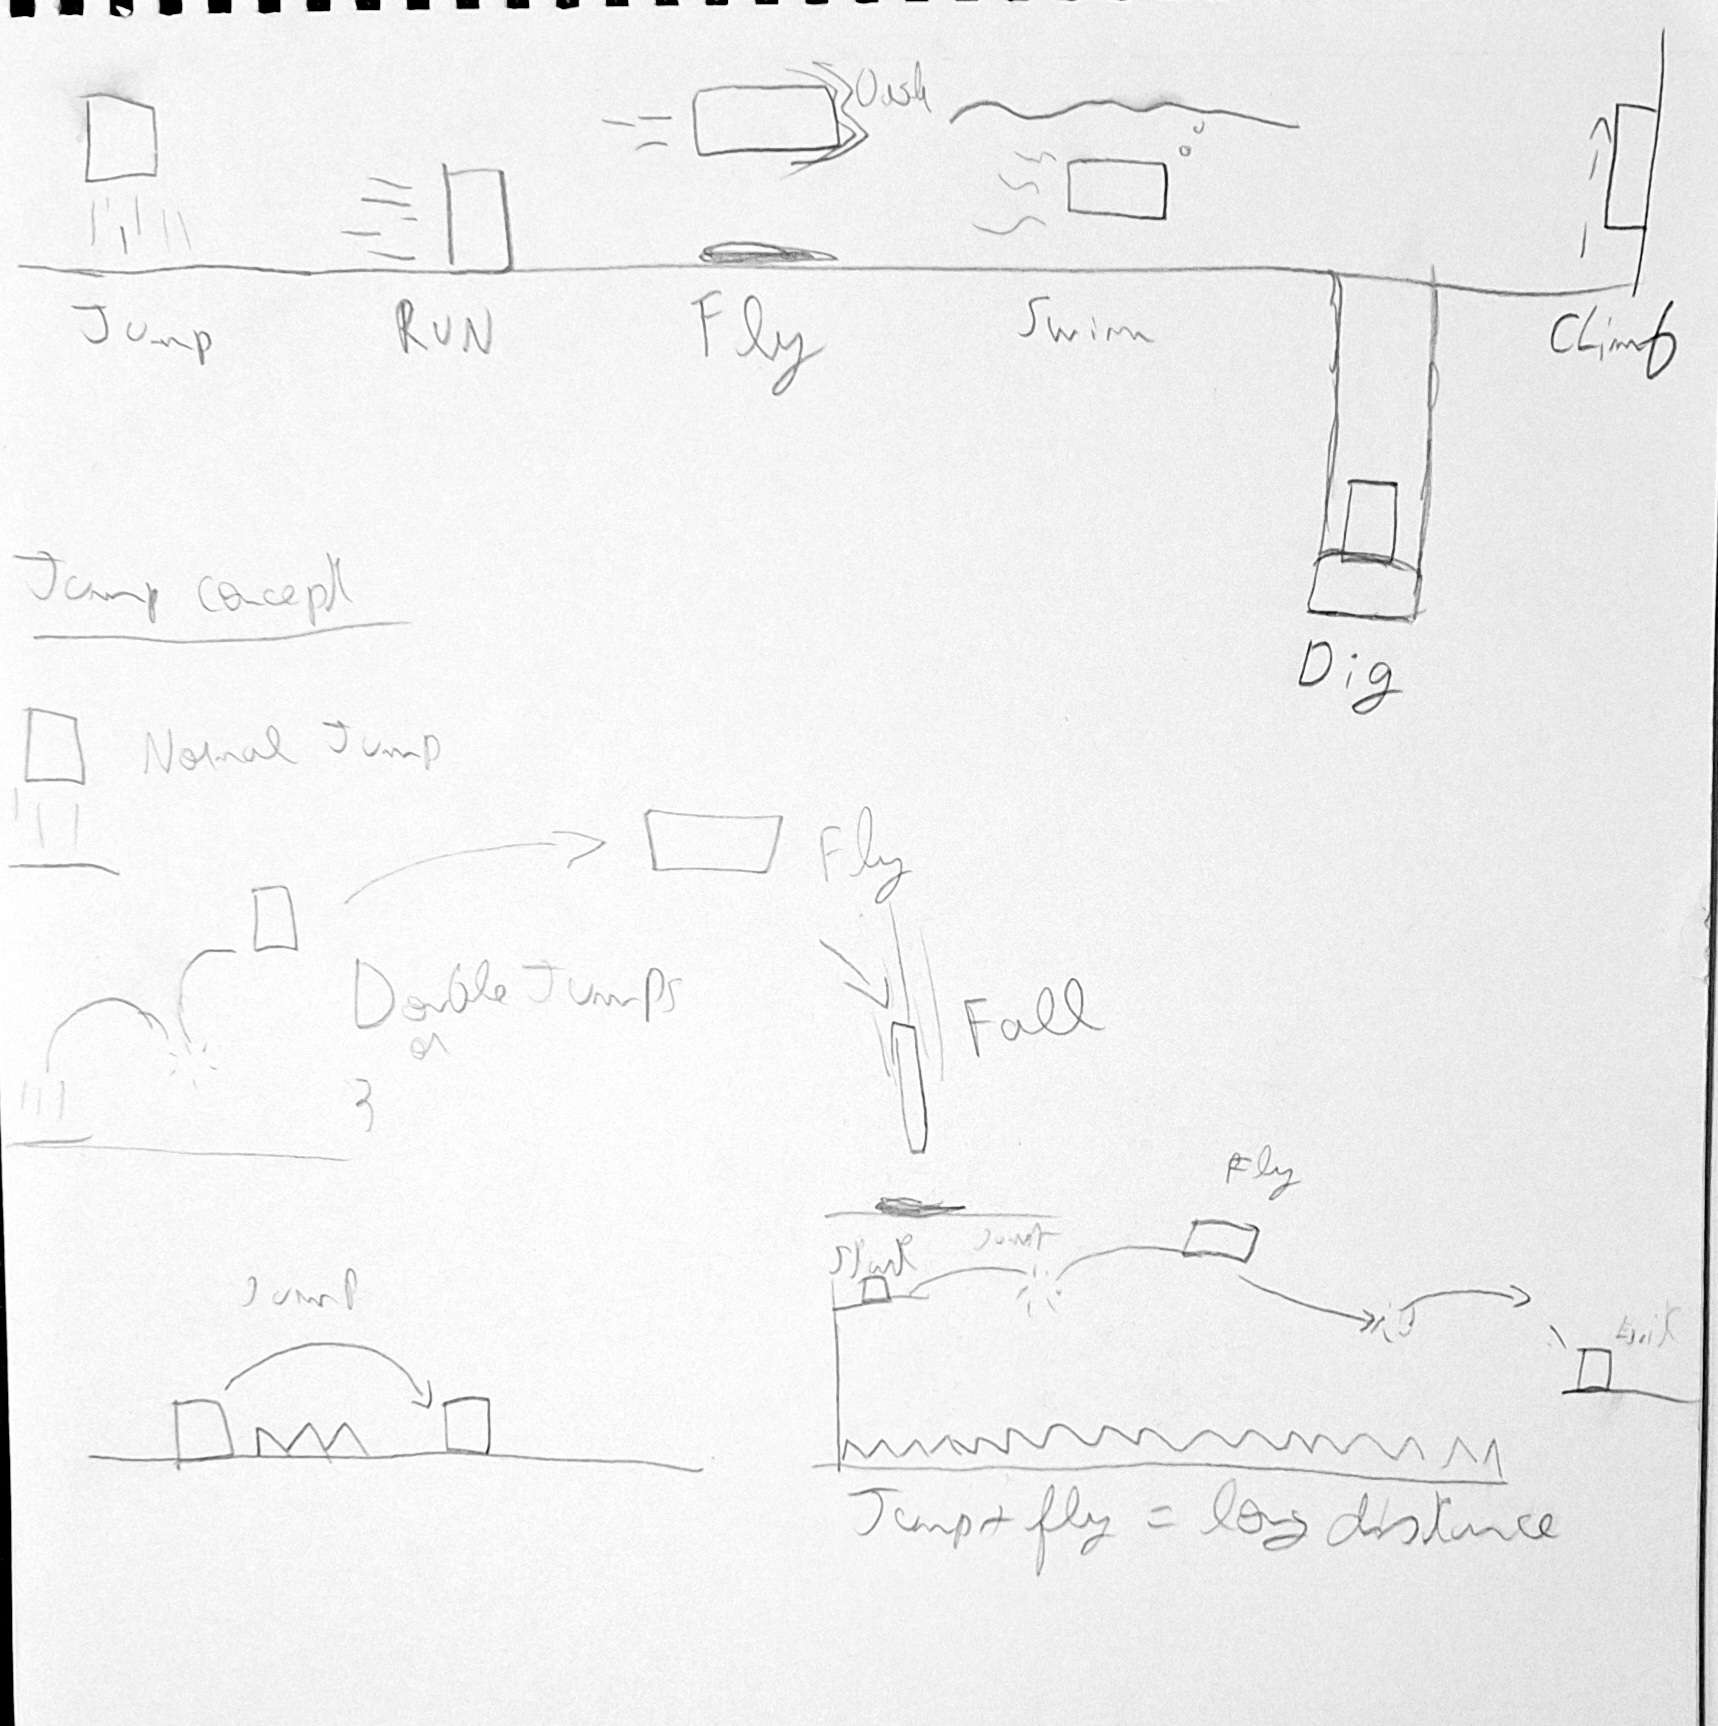 Dash
Jump
RUN
Fly
Swim
CLimb
Dig
Jump concept
Normal Jump
Fly
Double Jumps
or
3
Fall
Fly
Start
Jump
Jump
Exit
Jump + fly = long distance